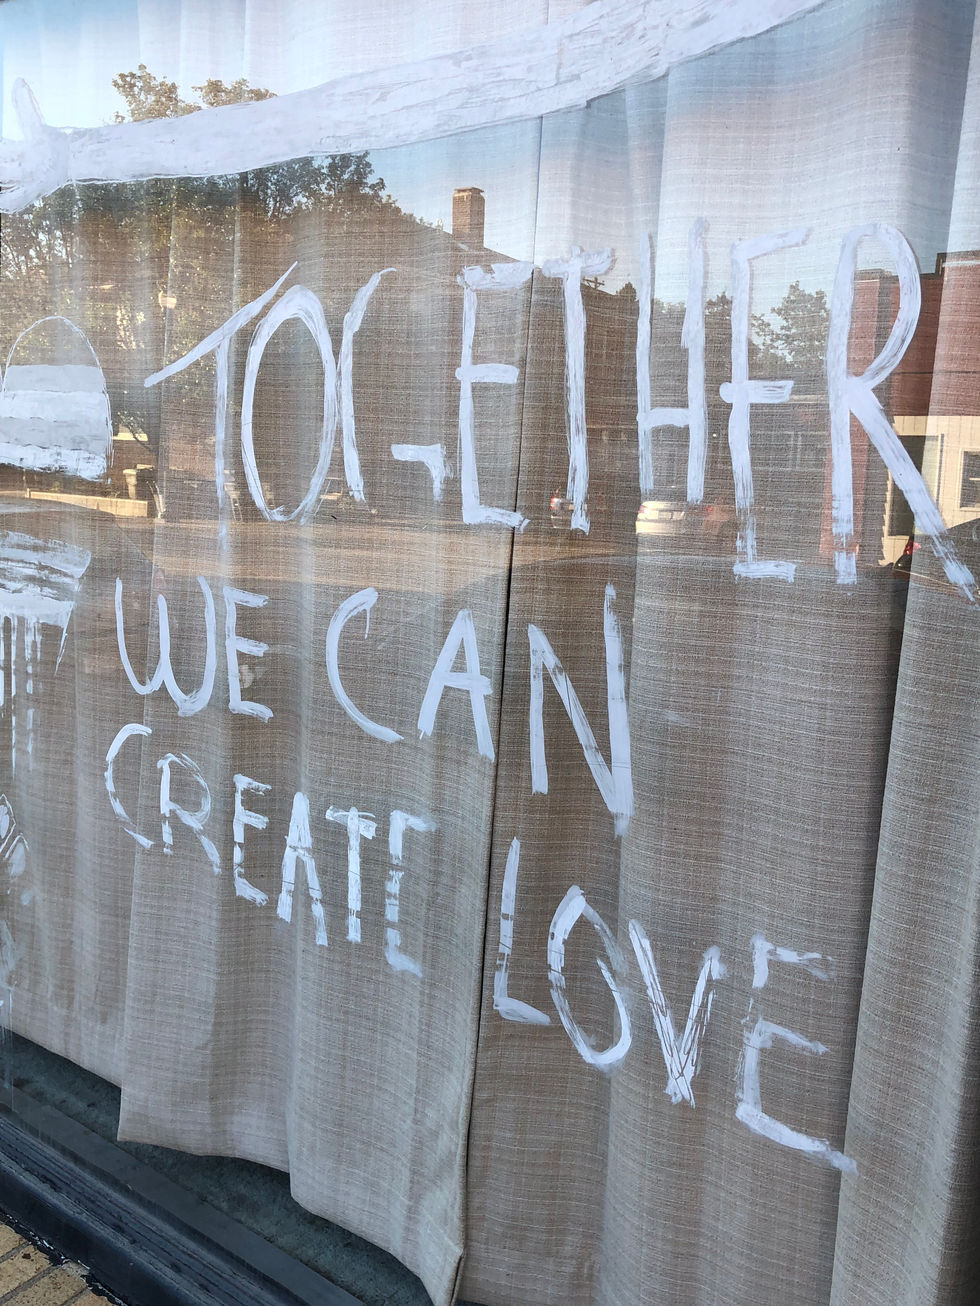 TOGETHER
WE CAN
CREATE
LOVE